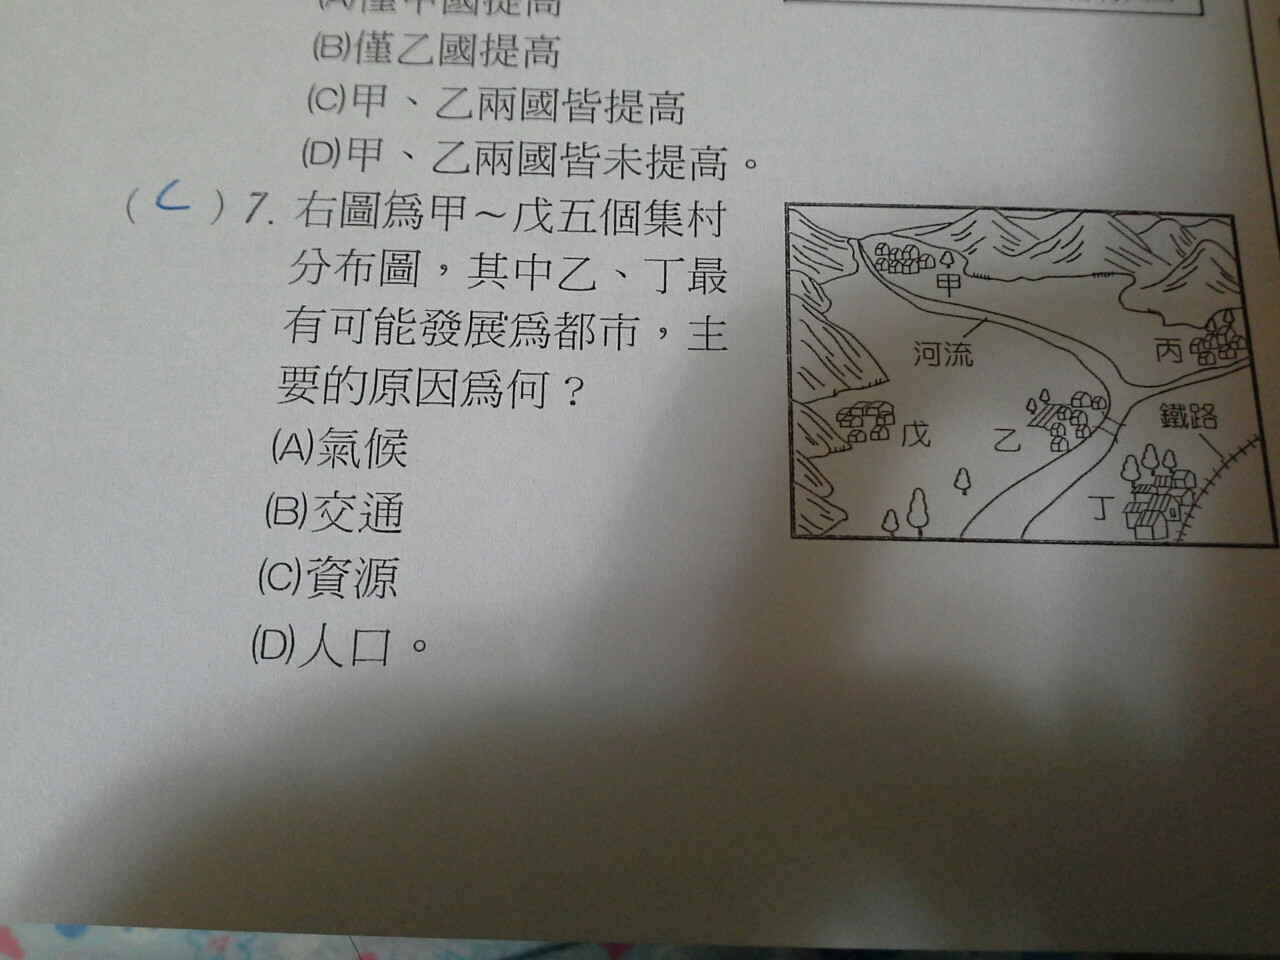 (A)僅甲國提高
(B)僅乙國提高
(C)甲、乙兩國皆提高
(D)甲、乙兩國皆未提高。
(C)7. 右圖為甲~戊五個集村
分布圖，其中乙、丁最
有可能發展為都市，主
要的原因為何？
(A)氣候
(B)交通
(C)資源
(D)人口。
甲
河流
丙
鐵路
戊
乙
丁